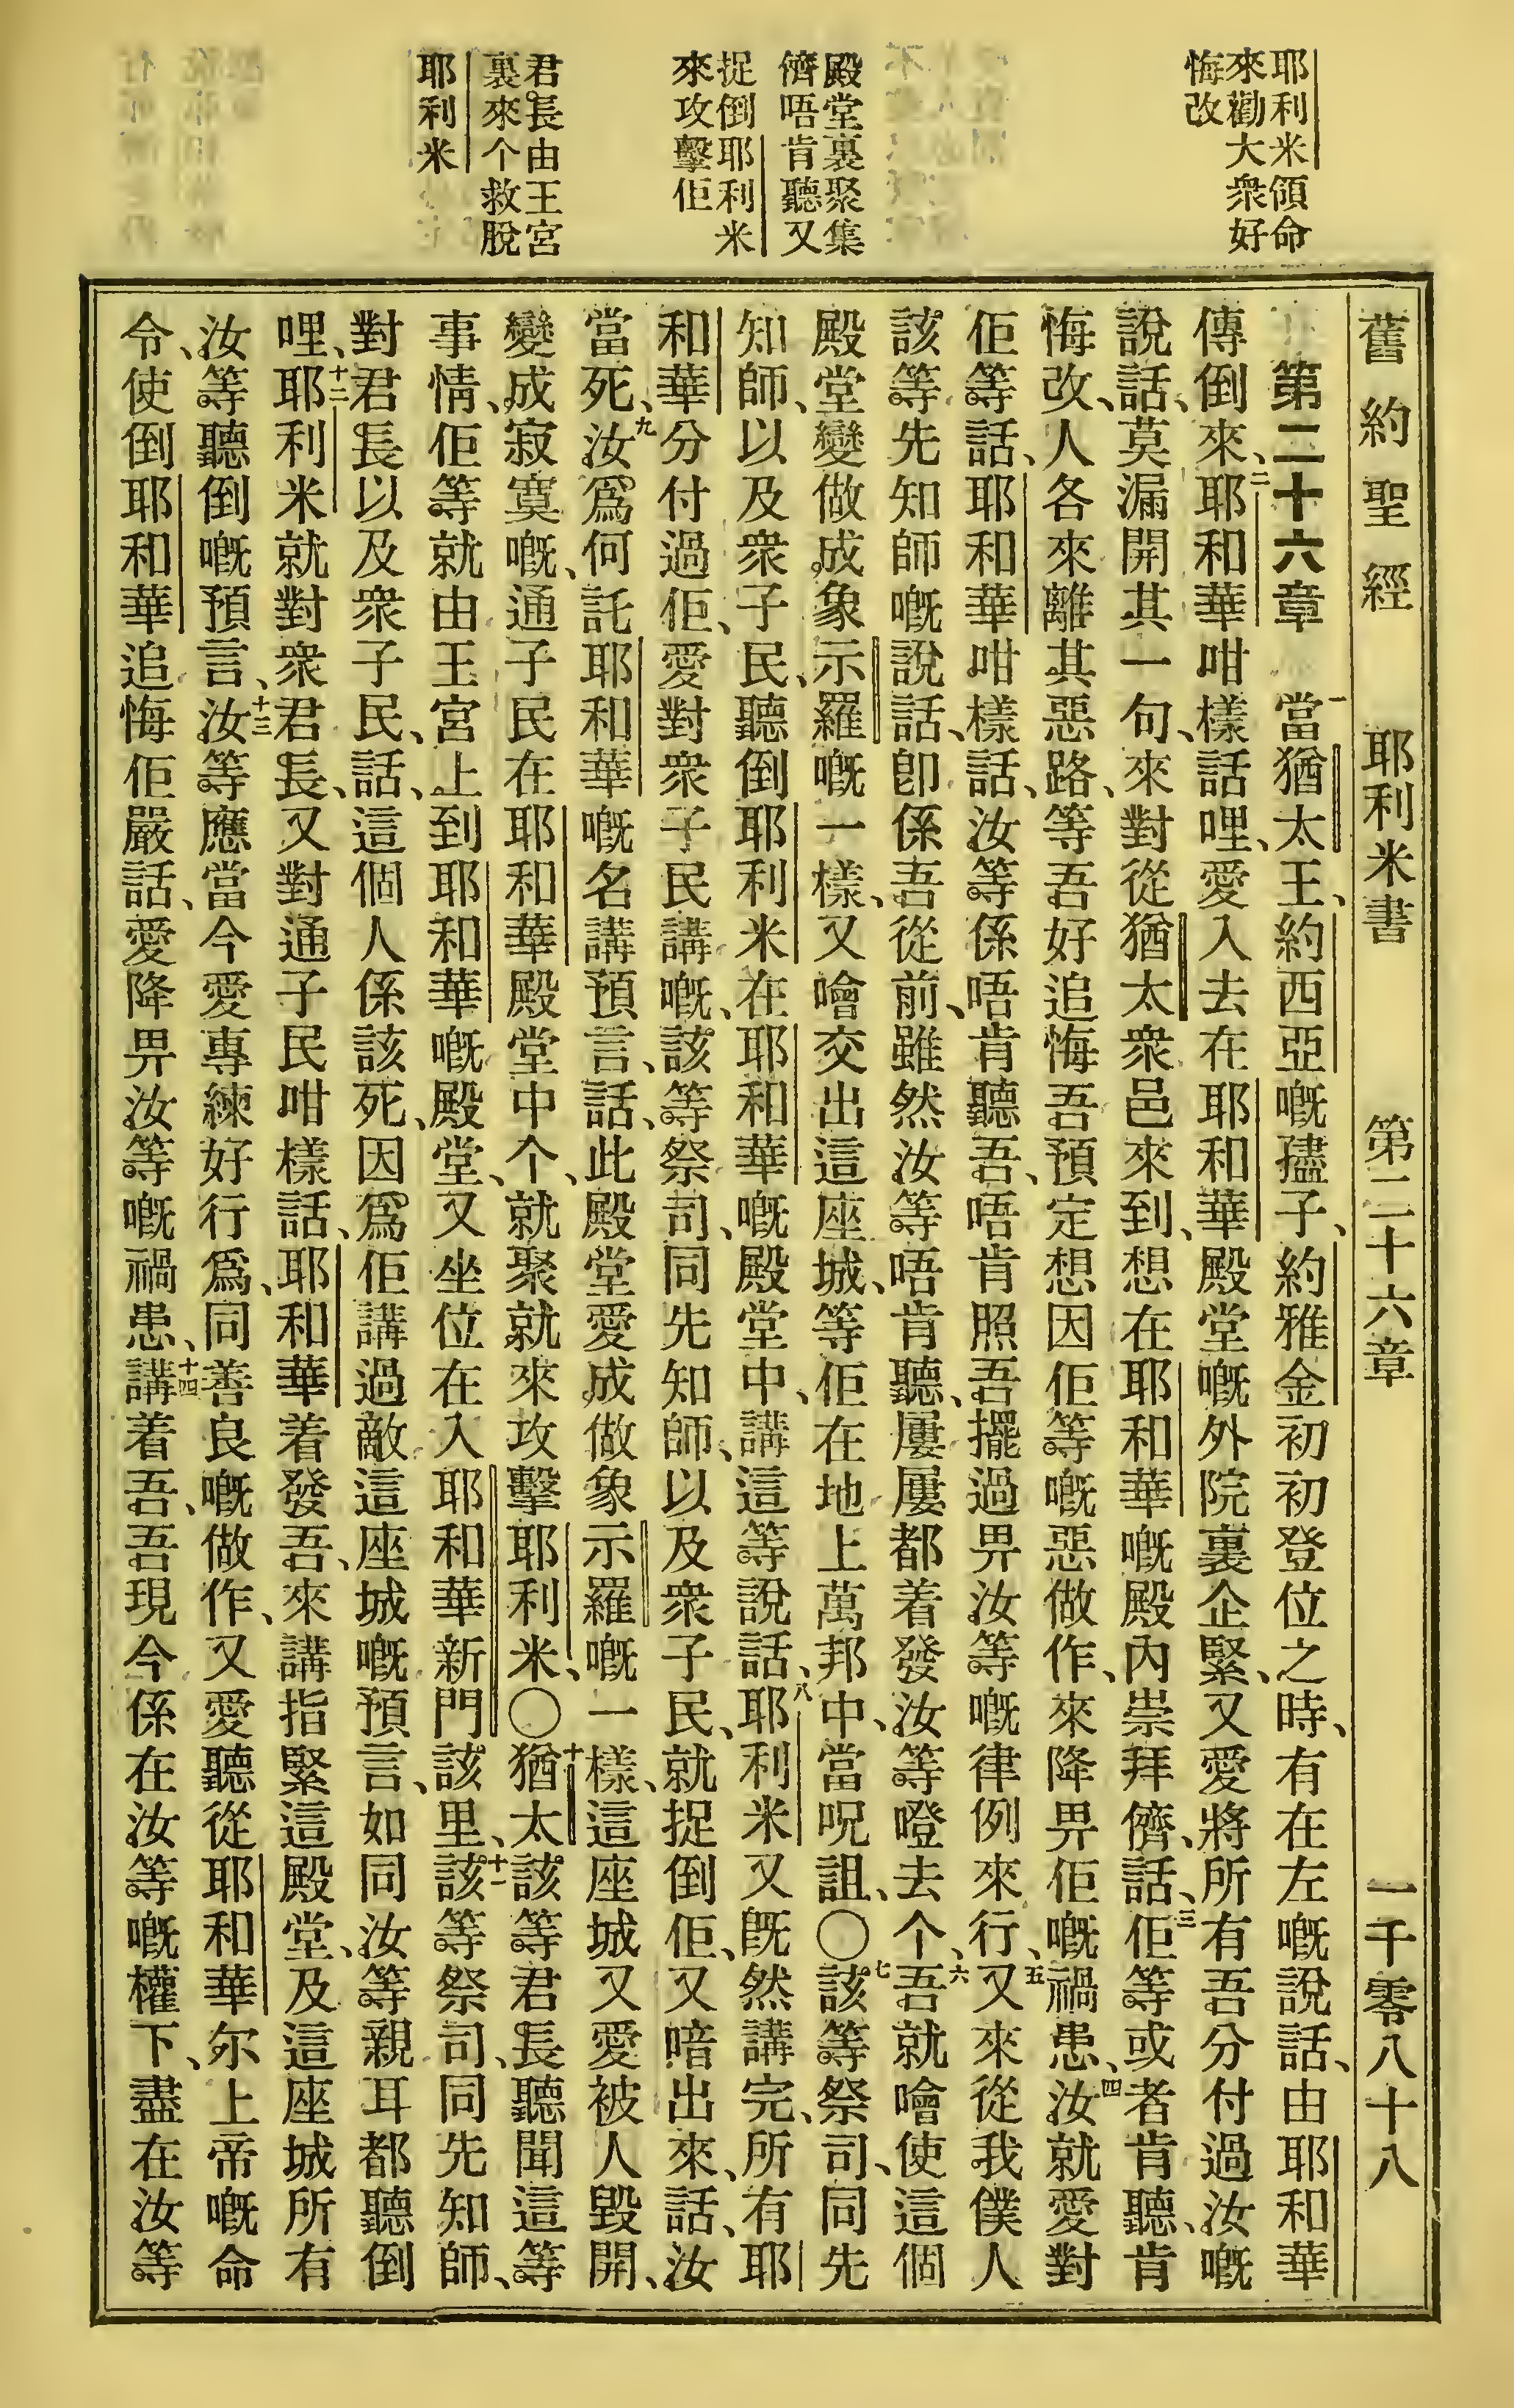 耶利米領命
來勸大衆好
悔改
殿堂裏聚集
儕唔肯聽又
捉倒耶利米
來攻擊佢
君長由王宮
裏來个救脫
耶利米
舊約聖經　耶利米書　第二十六章　一千零八十八
第二十六章　一當猶太王、約西亞嘅𡥧子、約雅金初初登位之時、有在左嘅說話、由耶和華
傳倒來、二耶和華咁樣話哩、愛入去在耶和華殿堂嘅外院裏企緊、又愛將所有吾分付過汝嘅
說話、莫漏開其一句、來對從猶太衆邑來到、想在耶和華嘅殿內崇拜儕、話、三佢等或者肯聽、肯
悔改、人各來離其惡路、等吾好追悔吾預定想因佢等嘅惡做作、來降畀佢嘅禍患、四汝就愛對
佢等話、耶和華咁樣話、汝等係唔肯聽吾、唔肯照吾擺過畀汝等嘅律例來行、五又來從我僕人
該等先知師嘅說話、卽係吾從前、雖然汝等唔肯聽、屢屢都着發汝等蹬去个、六吾就噲使這個
殿堂變做成象示羅嘅一樣、又噲交出這座城、等佢在地上萬邦中、當呪詛、〇七該等祭司、同先
知師、以及衆子民、聽倒耶利米在耶和華嘅殿堂中、講這等說話、八耶利米又旣然講完、所有耶
和華分付過佢、愛對衆子民講嘅、該等祭司、同先知師、以及衆子民、就捉倒佢、又喑出來、話、汝
當死、九汝爲何託耶和華嘅名講預言、話、此殿堂愛成做象示羅嘅一樣、這座城又愛被人毀開、
變成寂寞嘅、通子民在耶和華殿堂中个、就聚就來攻擊耶利米、〇十猶太該等君長聽聞這等
事情、佢等就由王宮上到耶和華嘅殿堂、又坐位在入耶和華新門該里、十一該等祭司、同先知師、
對君長以及衆子民、話、這個人係該死、因爲佢講過敵這座城嘅預言、如同汝等親耳都聽倒
哩、十二耶利米就對衆君長、又對通子民咁樣話、耶和華着發吾、來講指緊這殿堂、及這座城所有
汝等聽倒嘅預言、十三汝等應當今愛專練好行爲、同善良嘅做作、又愛聽從耶和華尔上帝嘅命
令、使倒耶和華追悔佢嚴話、愛降畀汝等嘅禍患、十四講着吾、吾現今係在汝等嘅權下、盡在汝等